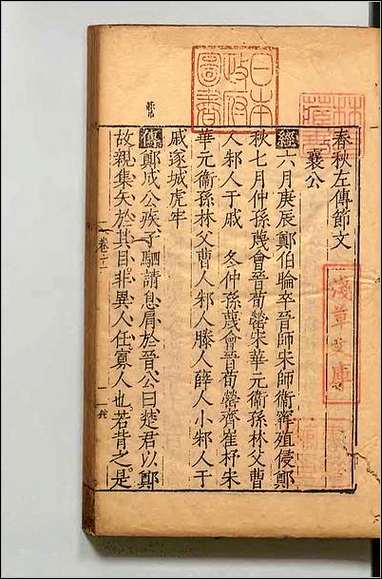 春秋左傳節文
襄公
經六月庚辰鄭伯睔卒晉師宋師衞甯殖侵鄭
秋七月仲孫蔑會晉荀罃宋華元衞孫林父曹
人邾人于戚　冬仲孫蔑會晉荀罃齊崔杼宋
華元衞孫林父曹人邾人滕人薛人小邾人于
戚遂城虎牢
傳鄭成公疾子駟請息肩於晉公曰楚君以鄭
故親集矢於其目非異人任寡人也若背之是
卷十一
日本
政府
圖書
林氏
藏書
淺草文庫